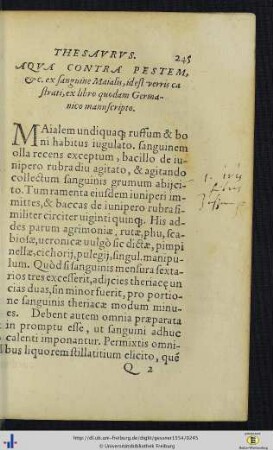 THESAVRVS. 245
AQVA CONTRA PESTEM,
&c. ex sanguine Maialis, id est verris ca
strati, ex libro quodam Germa-
nico manuscripto.
MAialem undiquaq; ruffum & bo
ni habitus iugulato. sanguinem
olla recens exceptum, bacillo de iu-
nipero rubra diu agitato, & agitando
collectum sanguinis grumum abijci-
to. Tum ramenta eiusdem iuniperi im-
mittes, & baccas de iunipero rubra si-
militer circiter uiginti quinq;. His ad-
des parum agrimoniæ, rutæ, phu, sca-
biosæ, ueronicæ uulgò sic dictæ, pimpi
nellæ, cichorij, pulegij, singul. manipu-
lum. Quòd si sanguinis mensura sexta-
rios tres excesserit, adijcies theriacę un
cias duas, sin minor fuerit, pro portio-
ne sanguinis theriacæ modum minu-
es. Debent autem omnia præparata
in promptu esse, ut sanguini adhuc
calenti imponantur. Permixtis omni-
bus liquorem stillatitium elicito, quē
Q 2
http://dl.ub.uni-freiburg.de/diglit/gessner1554/0245
© Universitätsbibliothek Freiburg